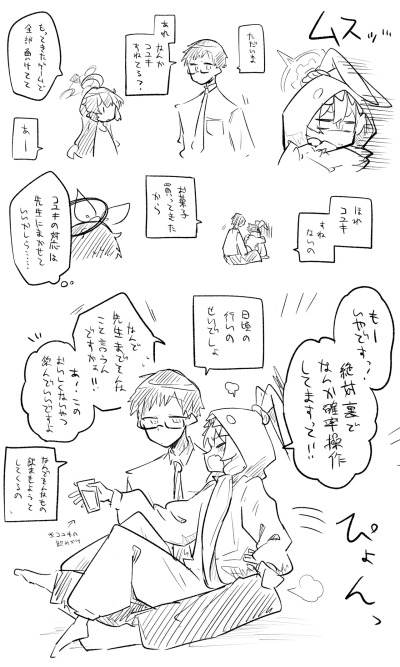 ムスッ
ただいま
あれ
なんか
コユキ
すねてる?
もってきたゲームで
全部負けてて
あー
ほれ
コユキ
すねないの
お菓子
買ってきた
から
コユキの対応は
先生にまかせて
いいかしら……
もー
いやです??
絶対裏で
なんか確率操作
してますって!!
日頃の
行いの
せいでしょ
なんで
先生までそんな
こと言うん
ですかぁ!!
あ!この
おいしくないやつ
飲んでいいですよ
なんでそんなもの
飲ませようと
してくるの
※コユキの
飲みかけ
ぴょんっ